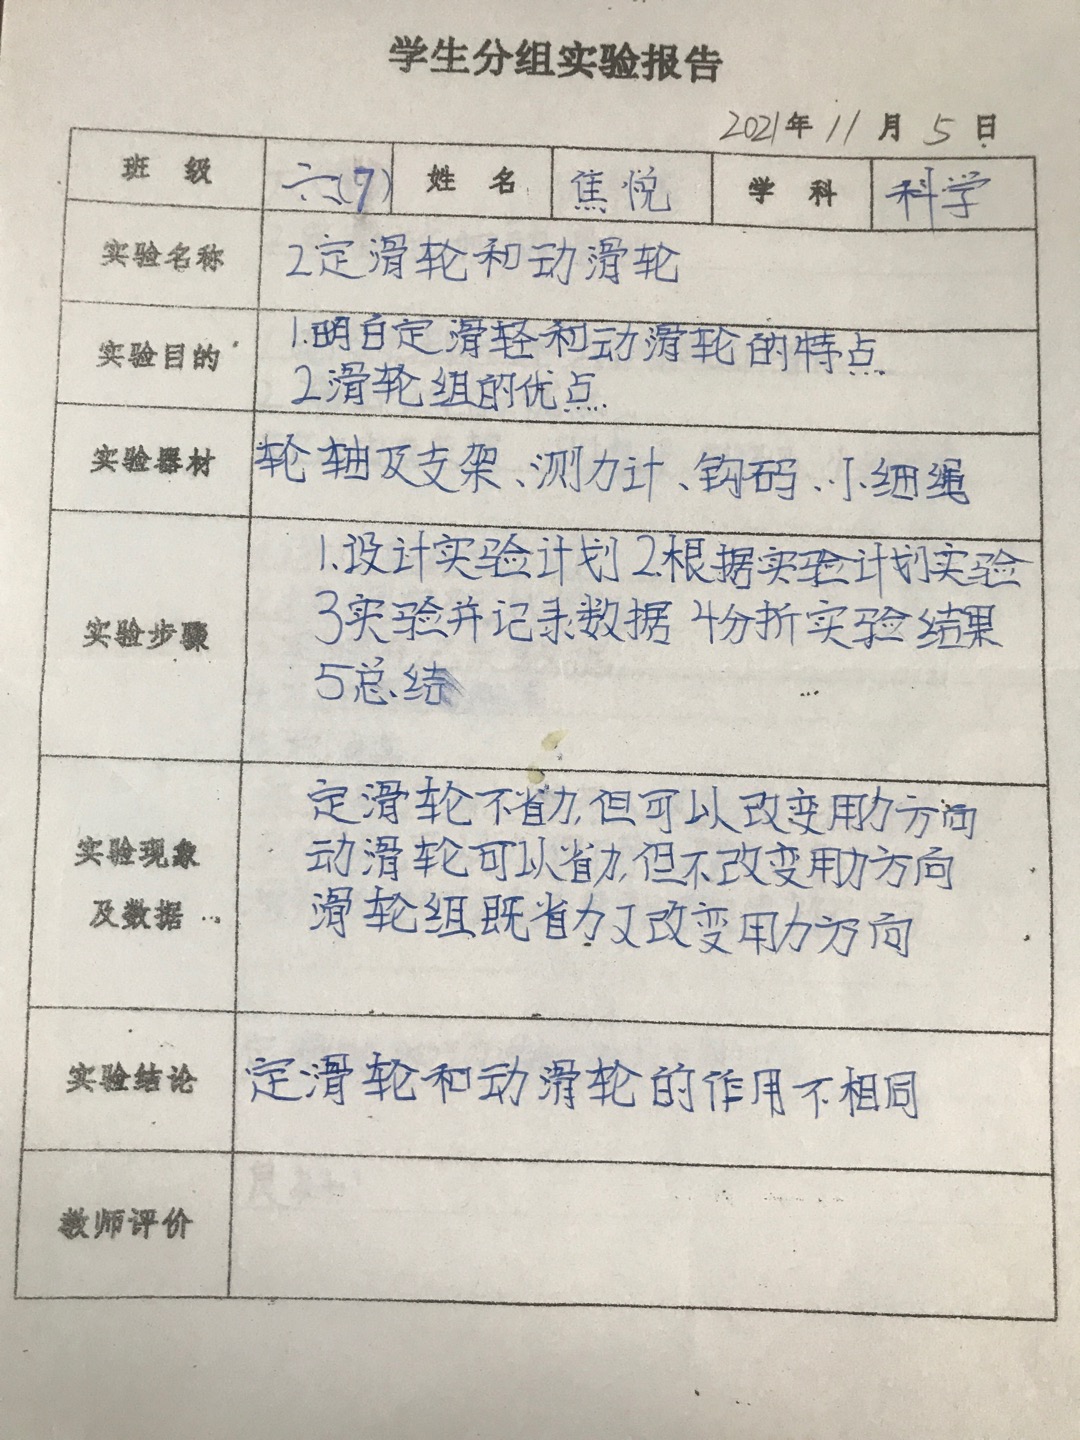 学生分组实验报告
2021年11月5日
班级 六(7) 姓名 焦悦 学科 科学
实验名称 2定滑轮和动滑轮
实验目的 1.明白定滑轻和动滑轮的特点
2滑轮组的优点
实验器材 轮轴及支架、测力计、钩码、小细绳
实验步骤 1.设计实验计划 2.根据实验计划实验
3实验并记录数据 4分折实验结果
5总结
实验现象及数据 定滑轮不省力,但可以改变用力方向
动滑轮可以省力,但不改变用力方向
滑轮组既省力又改变用力方向
实验结论 定滑轮和动滑轮的作用不相同
教师评价